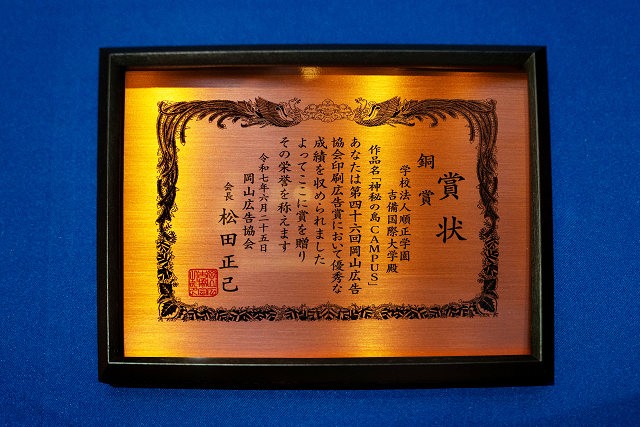 賞状
銅賞
学校法人順正学園
吉備国際大学殿
作品名「神秘の島CAMPUS」
あなたは第四十六回岡山広告
協会印刷広告賞において優秀な
成績を収められました
よってここに賞を贈り
その栄誉を称えます
令和七年六月二十五日
岡山広告協会
会長 松田正己